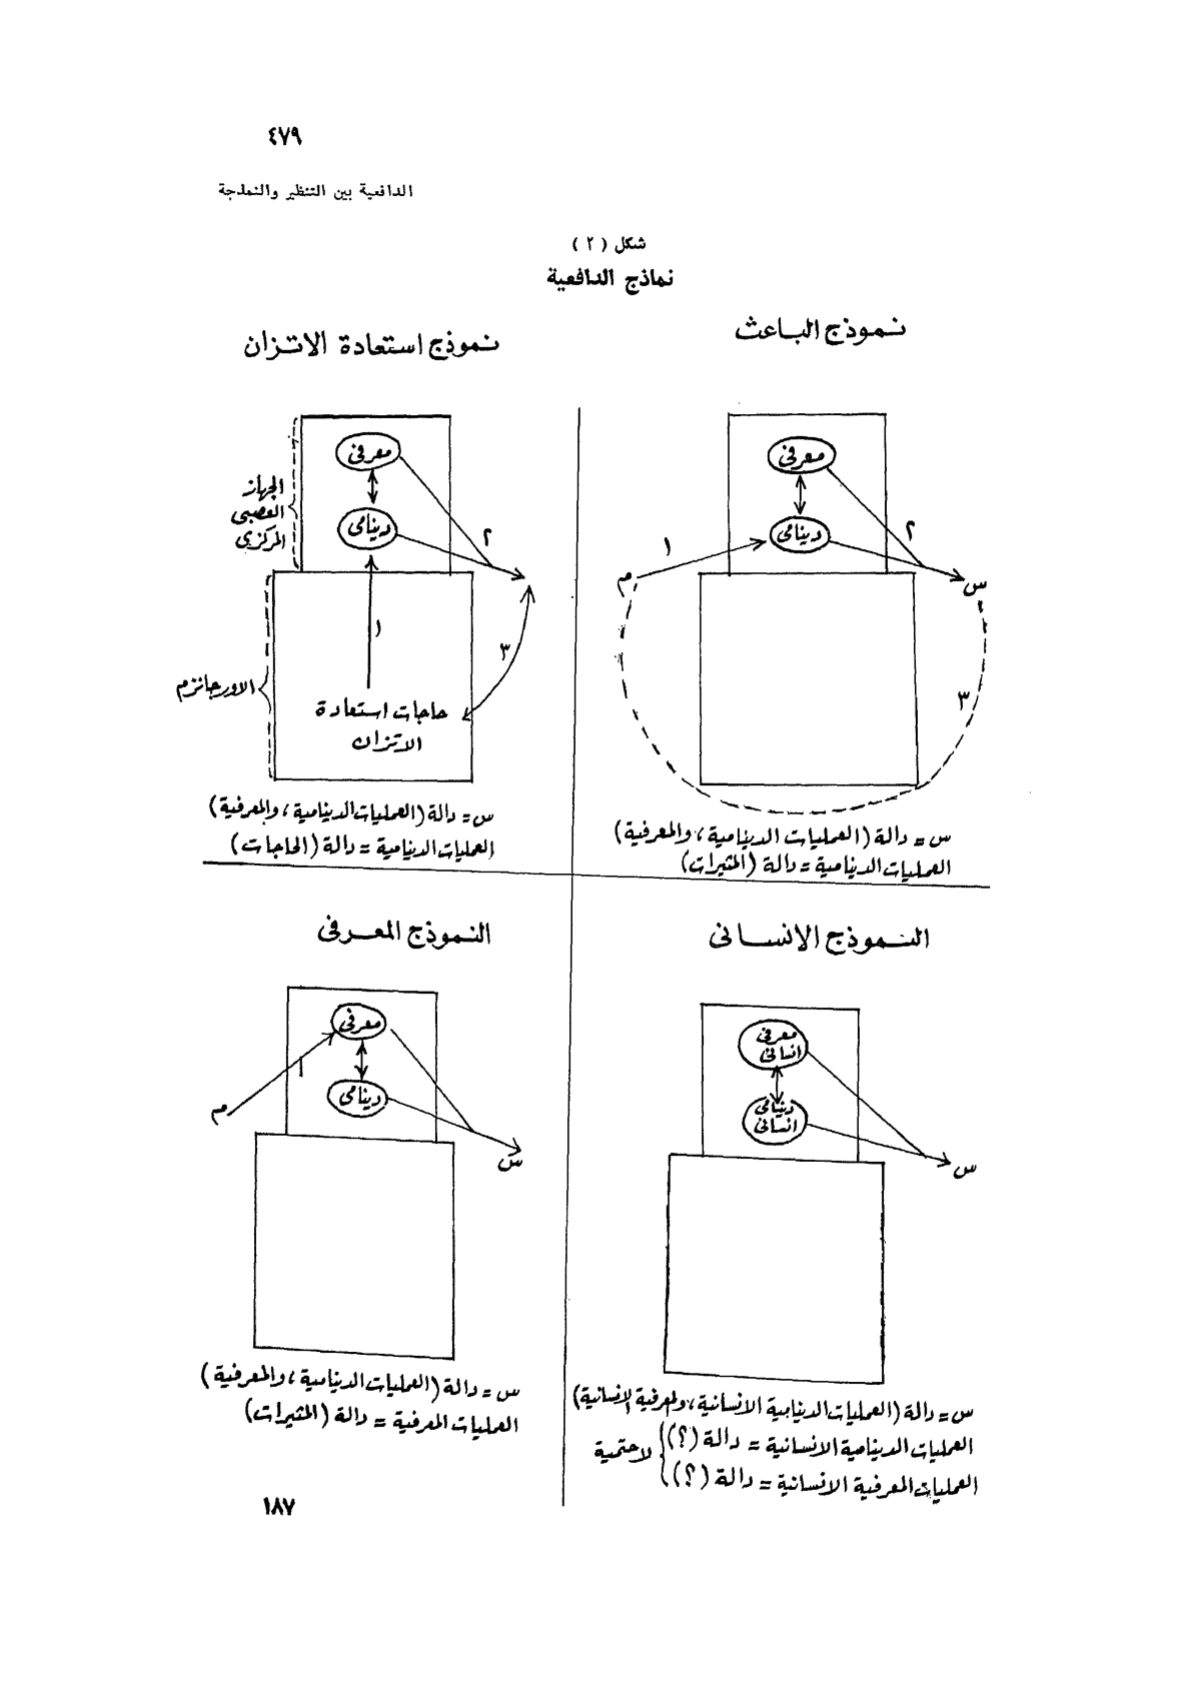 ٤٧٩
الدافعية بين التنظير والنمذجة
شكل ( ٢ )
نماذج الدافعية
نموذج الباعث
معرفى
دينامى
١
٢
م
س
٣
س = دالة (العمليات الدينامية ، والمعرفية)
العمليات الدينامية = دالة (المثيرات)
نموذج استعادة الاتزان
الجهاز
العصبى
المركزى
معرفى
دينامى
٢
١
٣
الاورجانزم
حاجات استعادة
الاتزان
س = دالة (العمليات الدينامية ، والمعرفية)
العمليات الدينامية = دالة (الحاجات)
النموذج الانسانى
معرفى
انسانى
دينامى
انسانى
س
س = دالة (العمليات الدينامية الانسانية ، والمعرفية الانسانية)
العمليات الدينامية الانسانية = دالة (؟)
لاحتمية
العمليات المعرفية الانسانية = دالة (؟)
النموذج المعرفى
معرفى
١
دينامى
م
س
س = دالة (العمليات الدينامية ، والمعرفية)
العمليات المعرفية = دالة (المثيرات)
١٨٧